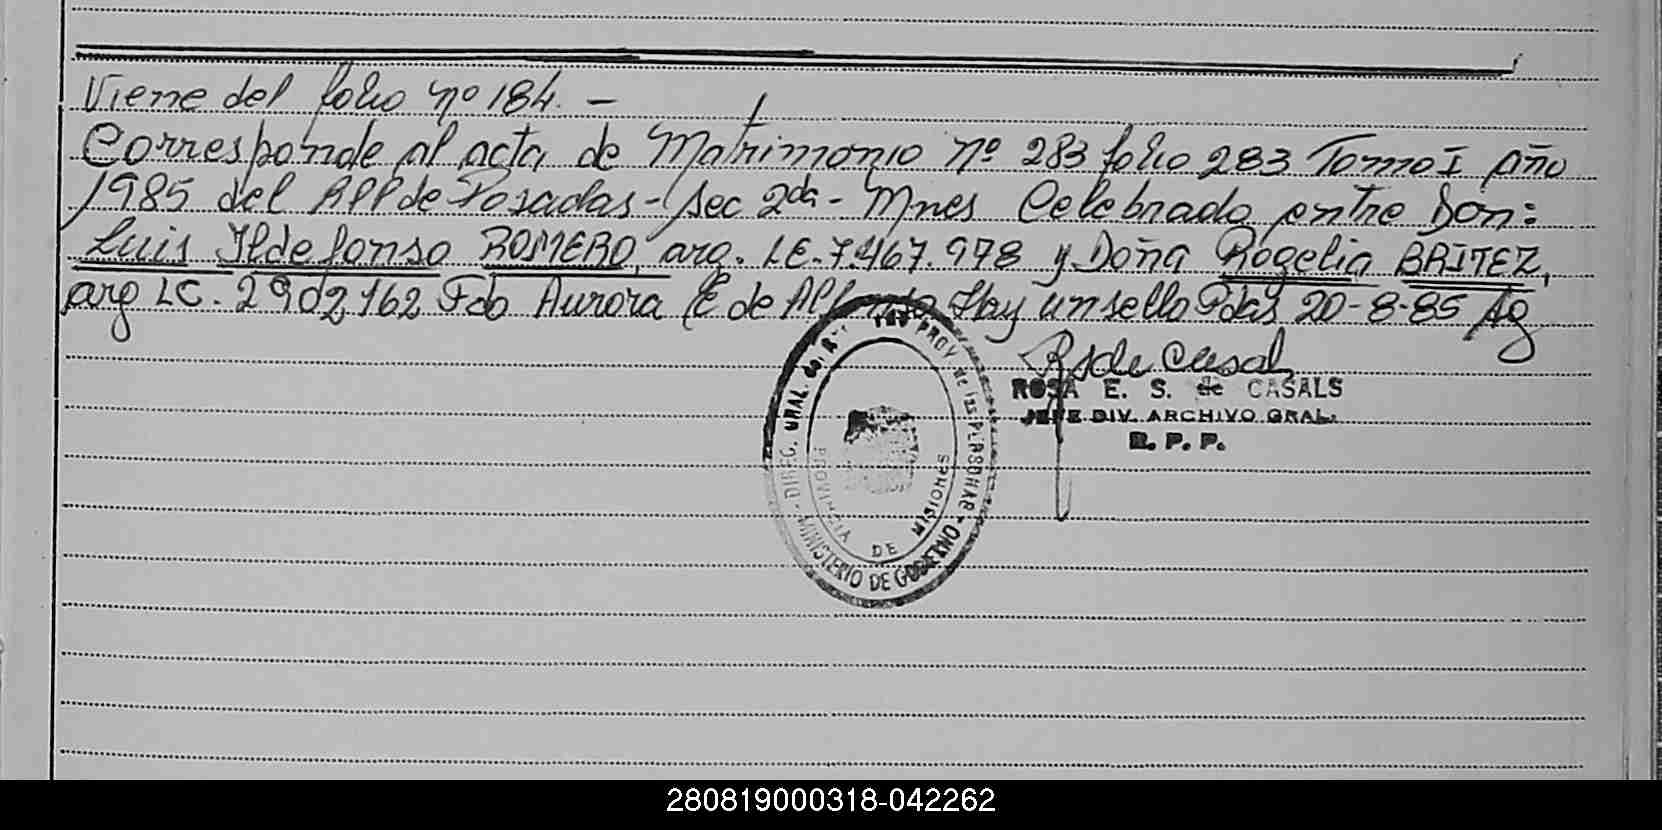 Viene del folio nº 184. –
Corresponde al acta de Matrimonio nº 283 folio 283 Tomo I año
1985 del RPP de Posadas - Sec 2da - Mnes Celebrado entre Don:
Luis Ildefonso ROMERO, arg. LE. 7.467.978 y Doña Rogelia BRITEZ,
arg LC. 2902162 Fdo Aurora E de Hay un sello Pdas 20-8-85 Ag
ROSA E. S. de CASALS
JEFE DIV. ARCHIVO GRAL.
R. P. P.
DIREC. GRAL. PROV. de las PERSONAS - MINISTERIO DE GOBIERNO -
PROVINCIA DE MISIONES
280819000318-042262